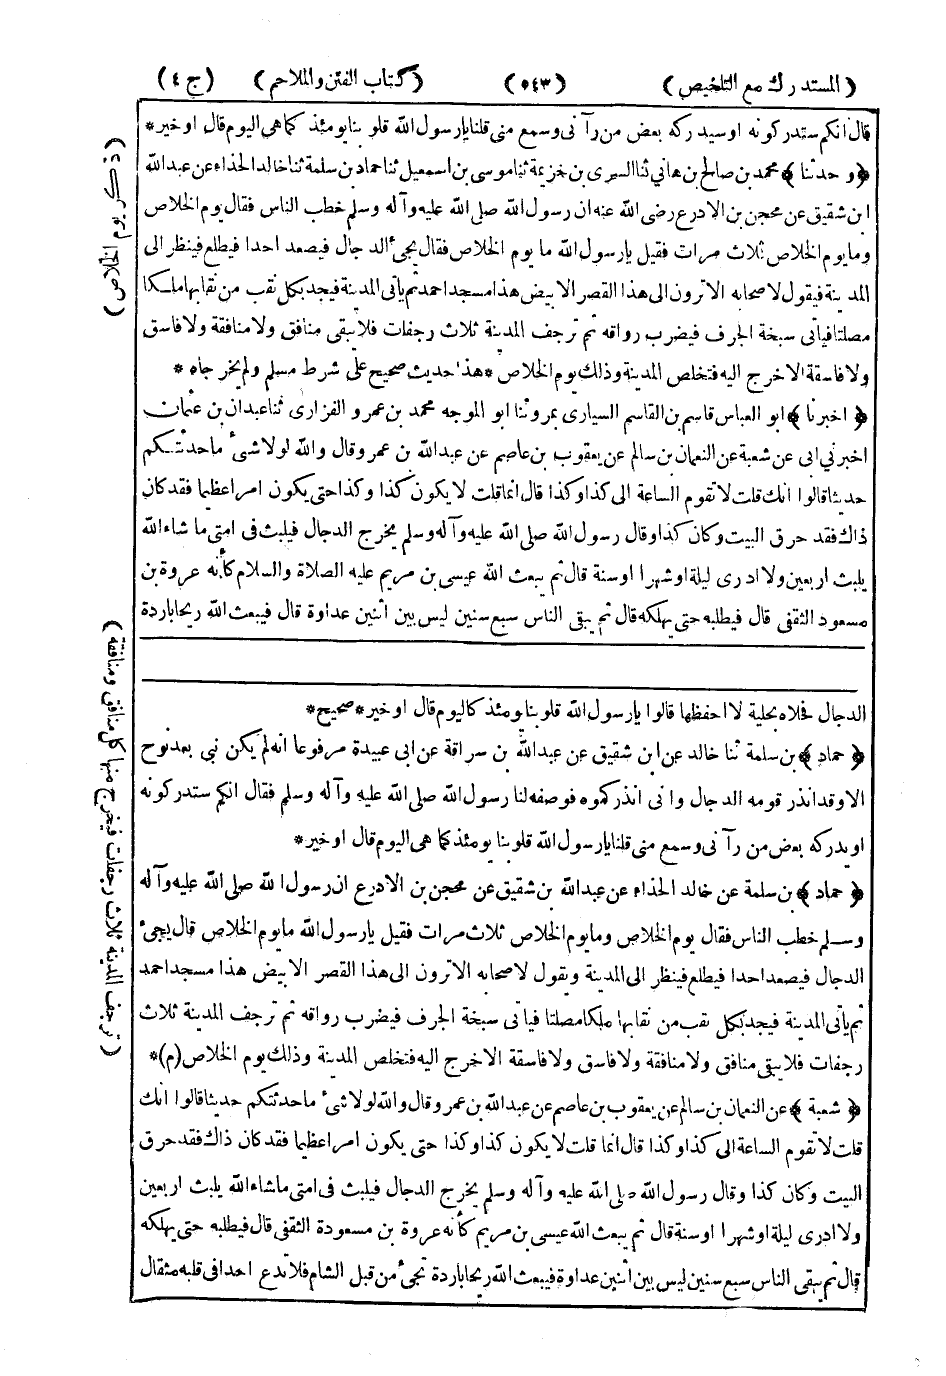 (المستدرك مع التلخيص) (٥٤٣) (كتاب الفتن والملاحم) (ج ٤)
قال انكم ستدركونه او سيدركه بعض من رآنى وسمع منى قلنا يارسول الله قلوبنا يومئذ كما هى اليوم قال او خير *
﴿ وحدثنا ﴾ محمد بن صالح بن هاني ثنا السرى بن خزيمة ثنا موسى بن اسمعيل ثنا حماد بن سلمة ثنا خالد الحذاء عن عبد الله
ابن شقيق عن محجن بن الادرع رضى الله عنه ان رسول الله صلى الله عليه وآله وسلم خطب الناس فقال يوم الخلاص
وما يوم الخلاص ثلاث مرات فقيل يارسول الله ما يوم الخلاص فقال يجىء الدجال فيصعد احدا فيطلع فينظر الى
المدينة فيقول لاصحابه الاترون الى هذا القصر الابيض هذا مسجد احمد ثم يأتى المدينة فيجد بكل نقب من نقابها ملكا
مصلتا فيأتى سبخة الجرف فيضرب رواقه ثم ترجف المدينة ثلاث رجفات فلا يبقى منافق ولا منافقة ولا فاسق
ولا فاسقة الاخرج اليه فتخلص المدينة وذلك يوم الخلاص * هذا حديث صحيح على شرط مسلم ولم يخرجاه *
﴿ اخبرنا ﴾ ابو العباس قاسم بن القاسم السيارى بمرو ثنا ابو الموجه محمد بن عمرو الفزارى ثنا عبدان بن عثمان
اخبرني ابى عن شعبة عن النعمان بن سالم عن يعقوب بن عاصم عن عبد الله بن عمر وقال والله لولا شىء ماحدثتكم
حديثا قالوا انك قلت لا تقوم الساعة الى كذا وكذا قال انما قلت لا يكون كذا وكذا حتى يكون امرا عظيما فقد كان
ذاك فقد حرق البيت وكان كذا وقال رسول الله صلى الله عليه وآله وسلم يخرج الدجال فيلبث فى امتى ما شاء الله
يلبث اربعين ولا ادرى ليلة او شهرا او سنة قال ثم يبعث الله عيسى بن مريم عليه الصلاة والسلام كأنه عروة بن
مسعود الثقفى قال فيطلبه حتى يهلكه قال ثم يبقى الناس سبع سنين ليس بين اثنين عداوة قال فيبعث الله ريحا باردة
الدجال فحلاه بحلية لا احفظها قالوا يارسول الله قلوبنا يومئذ كاليوم قال او خير * صحيح *
﴿ حماد ﴾ بن سلمة ثنا خالد عن ابن شقيق عن عبد الله بن سراقة عن ابى عبيدة مرفوعا انه لم يكن نبي بعد نوح
الا وقد انذر قومه الدجال وانى انذركموه فوصفه لنا رسول الله صلى الله عليه وآله وسلم فقال انكم ستدركونه
او يدركه بعض من رآنى وسمع منى قلنا يارسول الله قلوبنا يومئذ كما هى اليوم قال او خير *
﴿ حماد ﴾ بن سلمة عن خالد الحذاء عن عبد الله بن شقيق عن محجن بن الادرع ان رسول الله صلى الله عليه وآله
وسلم خطب الناس فقال يوم الخلاص وما يوم الخلاص ثلاث مرات فقيل يارسول الله ما يوم الخلاص قال يجىء
الدجال فيصعد احدا فيطلع فينظر الى المدينة ويقول لاصحابه الاترون الى هذا القصر الابيض هذا مسجد احمد
ثم يأتى المدينة فيجد بكل نقب من نقابها ملكا مصلتا فيأتى سبخة الجرف فيضرب رواقه ثم ترجف المدينة ثلاث
رجفات فلا يبقى منافق ولا منافقة ولا فاسق ولا فاسقة الاخرج اليه فتخلص المدينة وذلك يوم الخلاص (م) *
﴿ شعبة ﴾ عن النعمان بن سالم عن يعقوب بن عاصم عن عبد الله بن عمر وقال والله لولا شىء ماحدثتكم حديثا قالوا انك
قلت لا تقوم الساعة الى كذا وكذا قال انما قلت لا يكون كذا وكذا حتى يكون امرا عظيما فقد كان ذاك فقد حرق
البيت وكان كذا وقال رسول الله صلى الله عليه وآله وسلم يخرج الدجال فيلبث فى امتى ما شاء الله يلبث اربعين
ولا ادرى ليلة او شهرا او سنة قال ثم يبعث الله عيسى بن مريم كأنه عروة بن مسعودة الثقفى قال فيطلبه حتى يهلكه
قال ثم يبقى الناس سبع سنين ليس بين اثنين عداوة فيبعث الله ريحا باردة تجىء من قبل الشام فلا تدع احدا فى قلبه مثقال
(ترجف المدينة ثلاث رجفات فيخرج منها كل منافق ومنافقة)